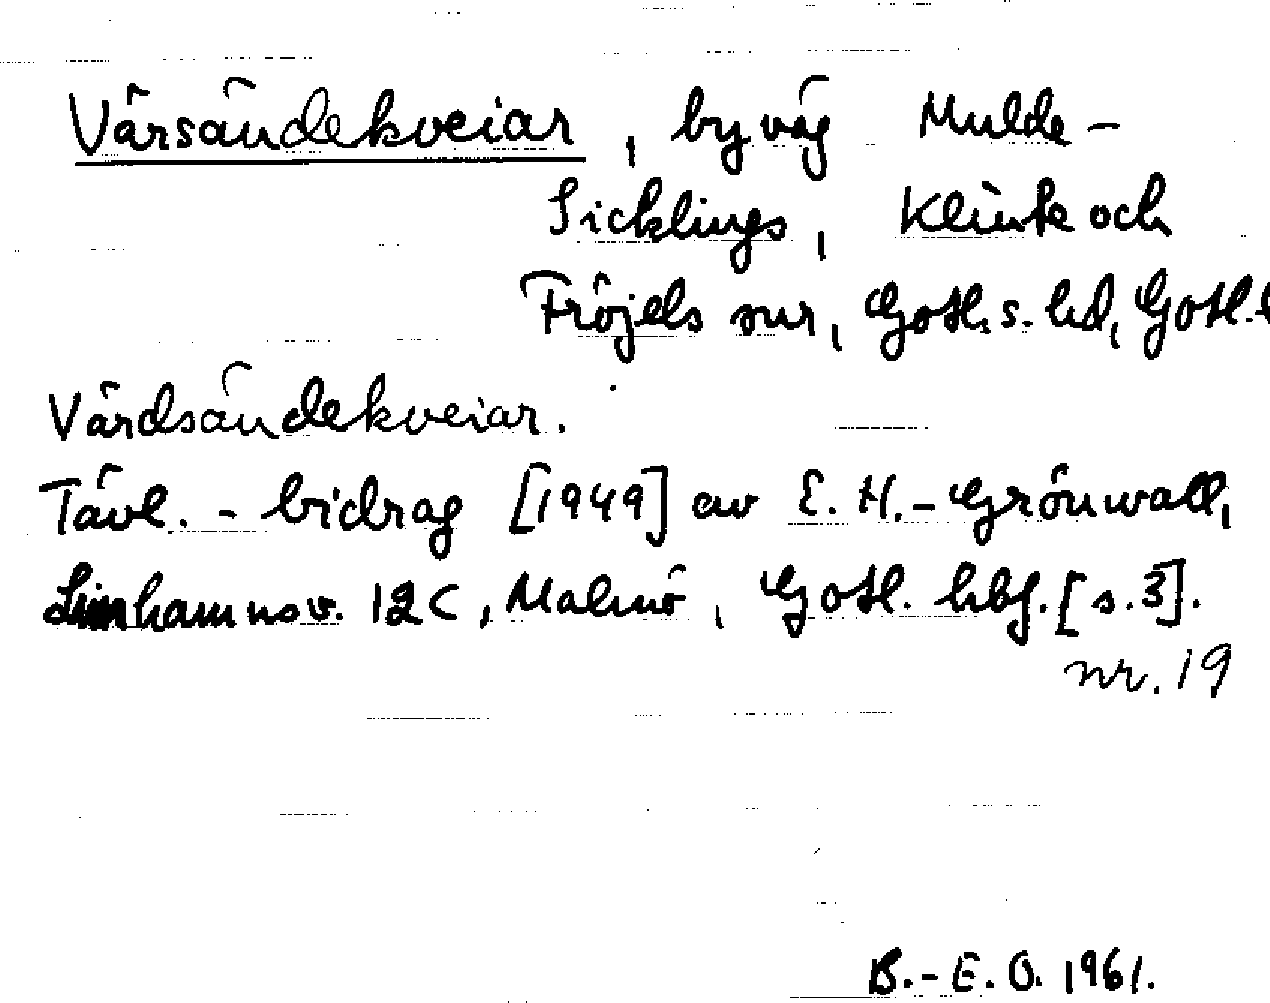 Värsändekveiar, byväg Mulde-
Sicklings, Klinte och
Fröjels snr, Gotl. s. hd, Gotl.
Värdsändekveiar.
Tävl.-bidrag [1949] av E. H.-Grönwall,
Limhamnsv. 12C, Malmö, Gotl. hbf. [s.3].
nr. 19
B.-E. O. 1961.